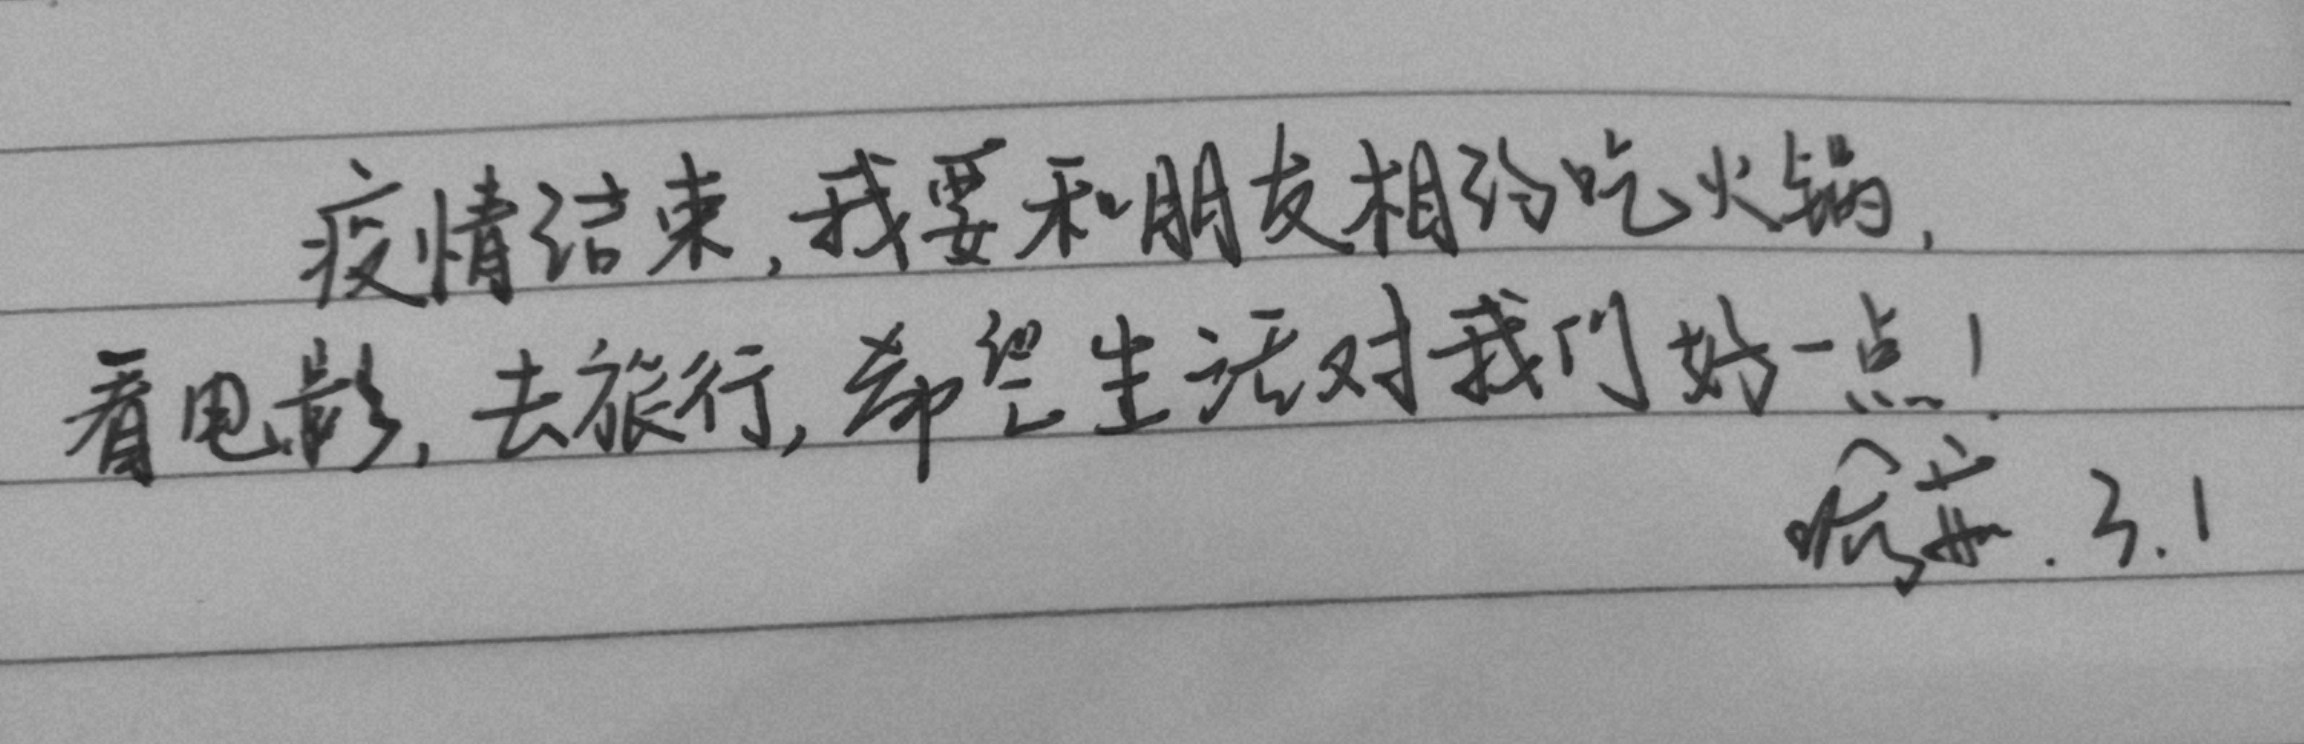 疫情结束,我要和朋友相约吃火锅,
看电影,去旅行,希望生活对我们好一点!
3.1